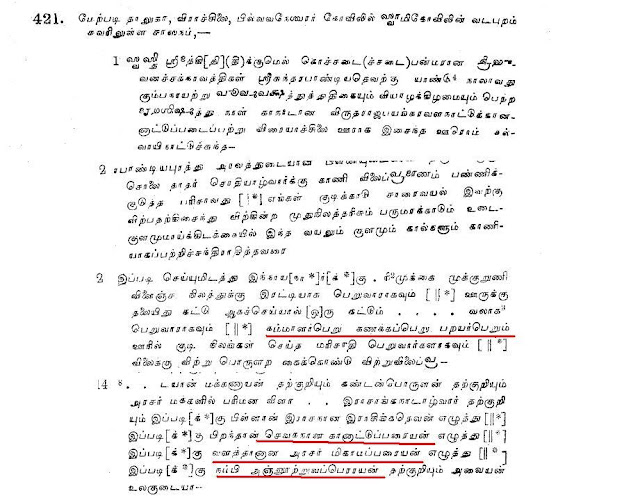 421. மேற்படி தாலுகா, விராச்சிலை, பில்வவனேஸ்வரர் கோவிலில் ஸ்வாமிகோவிலின் வடபுறம்
சுவரிலுள்ள சாஸநம்,—
1 ஸ்வஸ்தி ஸ்ரீ[தி](தி)க்குமேல் கொச்சடை(ச்சடை)பன்மரான திரிபு-
வனச்சக்கரவத்திகள் ஸ்ரீசுந்தரபாண்டியதெவற்கு யாண்டு நாலாவது
கும்பநாயற்று த்துத்திகையும் வியாழக்கிழமையும் பெற்ற
நாள் கானாடான விருதராஜபயங்கரவளநாட்டுக்கான-
னாட்டுப்படைப்பற்று விரையாச்சிலை ஊராக இசைந்த ஊரொம் கல்-
வாயிநாட்டுச்சுந்த—
2 ரபாண்டியபுரத்து அரவத்துடையான்
சொலை தாதர் சொதியாழ்வார்க்கு காணி விலைப்ரமாணம் பண்ணிக்-
குடுத்த பரிசாவது [|*] எங்கள் குடிக்காடு சாரைவயல் இவற்கு
விற்பதற்கிசைந்து விற்கின்ற முதுநிலத்தரிசும் பருமரக்காடும் உடை-
குளமுமாய்க்கிடக்கையில் இந்த வயலும் குளமும் கால்களும் காணி-
யாகப்பற்றிச்சந்திராதித்தவரை
3 இப்படி செய்யுமிடத்து இந்நாய[நா*]ர்[க்*]கு முக்கை முக்குறுணி
விளைஞ்ச நிலத்துக்கு இரட்டியாக பெறுவாராகவும் [||*] ஊருக்கு
தலையிது கட்டு ஆகச்செய்யால் [ஒ]ரு கட்டும் . . . . வலாக
பெறுவாராகவும் [||*] கம்மாளர்பெறு கணக்கப்பெறு பறயர்பெறும்
ஊரில் குடி நிலங்கள் செய்த மரிசாதி பெறுவார்களாகவும் [||*]
விலைகரு விற்று பொருளற கைக்கொண்டு விற்றுவிலைப்ர—
4 . . . டயான் மக்களாயன் தற்குறியும் கண்டன்பொருளன் தற்குறியும்
அரசர் மக்களில் பரிமள வினா . . இராசங்கநாடாழ்வார் தற்குறி-
யும் இப்படி[க்*]கு பிள்ளான் இராசநான இராசிங்கதெவன் எழுத்து [||*]
இப்படி[க்*]கு பிறந்தான் செவகநான கானாட்டுப்பரையன் எழுத்து [||*]
இப்படி[க்*]கு வளத்தானான அரசர் மிகாமப்பரையன் எழுத்து [||*]
இப்படி[க்*]கு நம்பி அஞ்ஞூற்றுவப்பெரரயன் தற்குறியும் அவையன்
உலகுடையா—